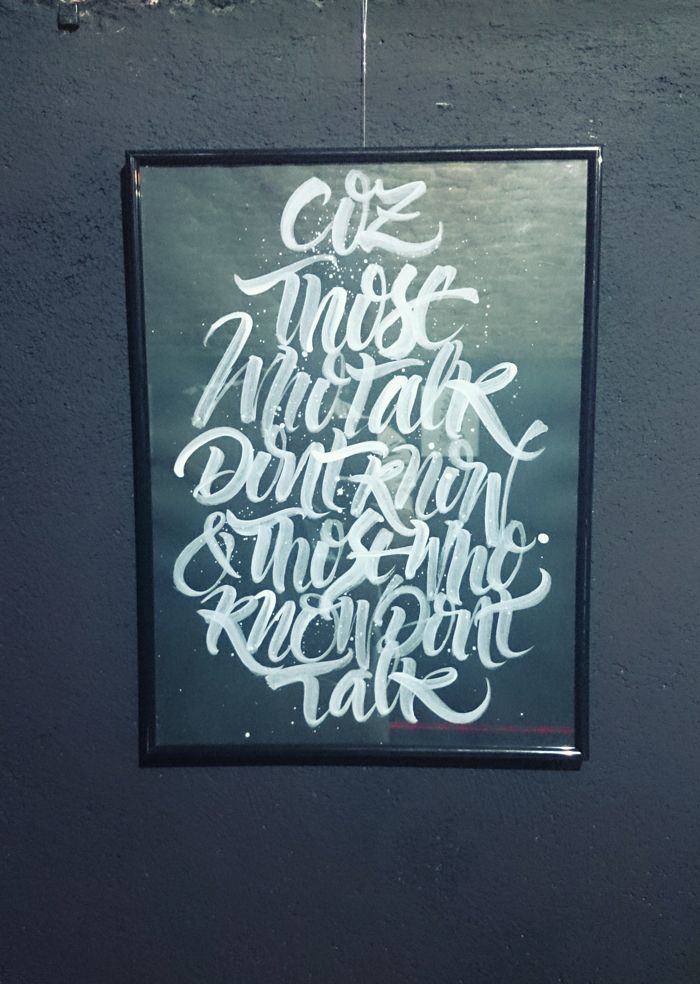 Coz
Those
Who Talk
Dont Know
& Those Who
Know Dont
Talk